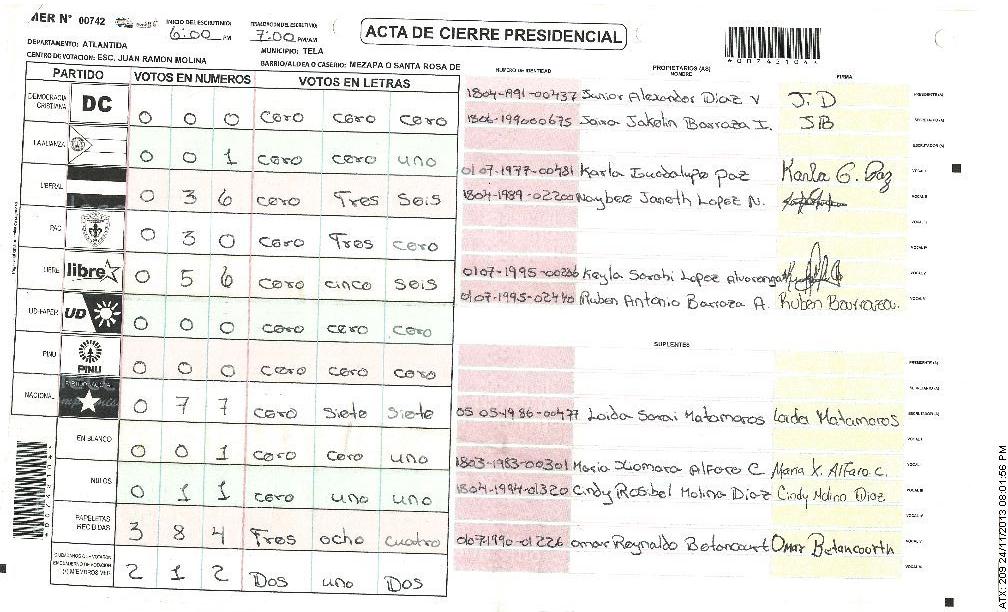 MER N° 00742 INICIO DEL ESCRUTINIO: 6:00 PM FINALIZACION DEL ESCRUTINIO: 7:00 PM/AM
ACTA DE CIERRE PRESIDENCIAL
DEPARTAMENTO: ATLANTIDA MUNICIPIO: TELA
CENTRO DE VOTACION: ESC. JUAN RAMON MOLINA BARRIO/ALDEA O CASERIO: MEZAPA O SANTA ROSA DE
PARTIDO VOTOS EN NUMEROS VOTOS EN LETRAS
DEMOCRACIA CRISTIANA DC 0 0 0 cero cero cero
LA ALIANZA 0 0 1 cero cero uno
LIBERAL 0 3 6 cero Tres Seis
PAC 0 3 0 cero Tres cero
LIBRE libre 0 5 6 cero cinco seis
UD-FAPER UD 0 0 0 cero cero cero
PINU PINU 0 0 0 cero cero cero
NACIONAL 0 7 7 cero siete siete
EN BLANCO 0 0 1 cero cero uno
NULOS 0 1 1 cero uno uno
PAPELETAS RECIBIDAS 3 8 4 Tres ocho cuatro
2 1 2 Dos uno Dos
NUMERO DE IDENTIDAD PROPIETARIOS (AS) NOMBRE FIRMA
Junior Alexander Diaz V J.D PRESIDENTE (A)
Jakelin Barraza I. JB SECRETARIO (A)
ESCRUTADOR (A)
0107-1977-00481 Karla Guadalupe Paz Karla G. Paz VOCAL I
1804-1989-02200 Naybee Janeth Lopez N. VOCAL II
0107-1995-00286 Keyla Sarahi Lopez Alvarenga VOCAL V
0107-1995-02440 Ruben Antonio Barraza A. Ruben Barraza.
SUPLENTES
PRESIDENTE (A)
SECRETARIO (A)
0505-1986-00477 Loida Sarai Matamoros Loida Matamoros ESCRUTADOR (A)
VOCAL I
1803-1983-00301 Maria Xiomara Alfaro C Maria X. Alfaro c.
1804-1994-01320 Cindy Rosibel Molina Diaz Cindy Molina Diaz VOCAL III
01071990-01226 omar Reynaldo Betancourt Omar Betancourth VOCAL V
ATX: 209 24/11/2013 08:01:56 PM